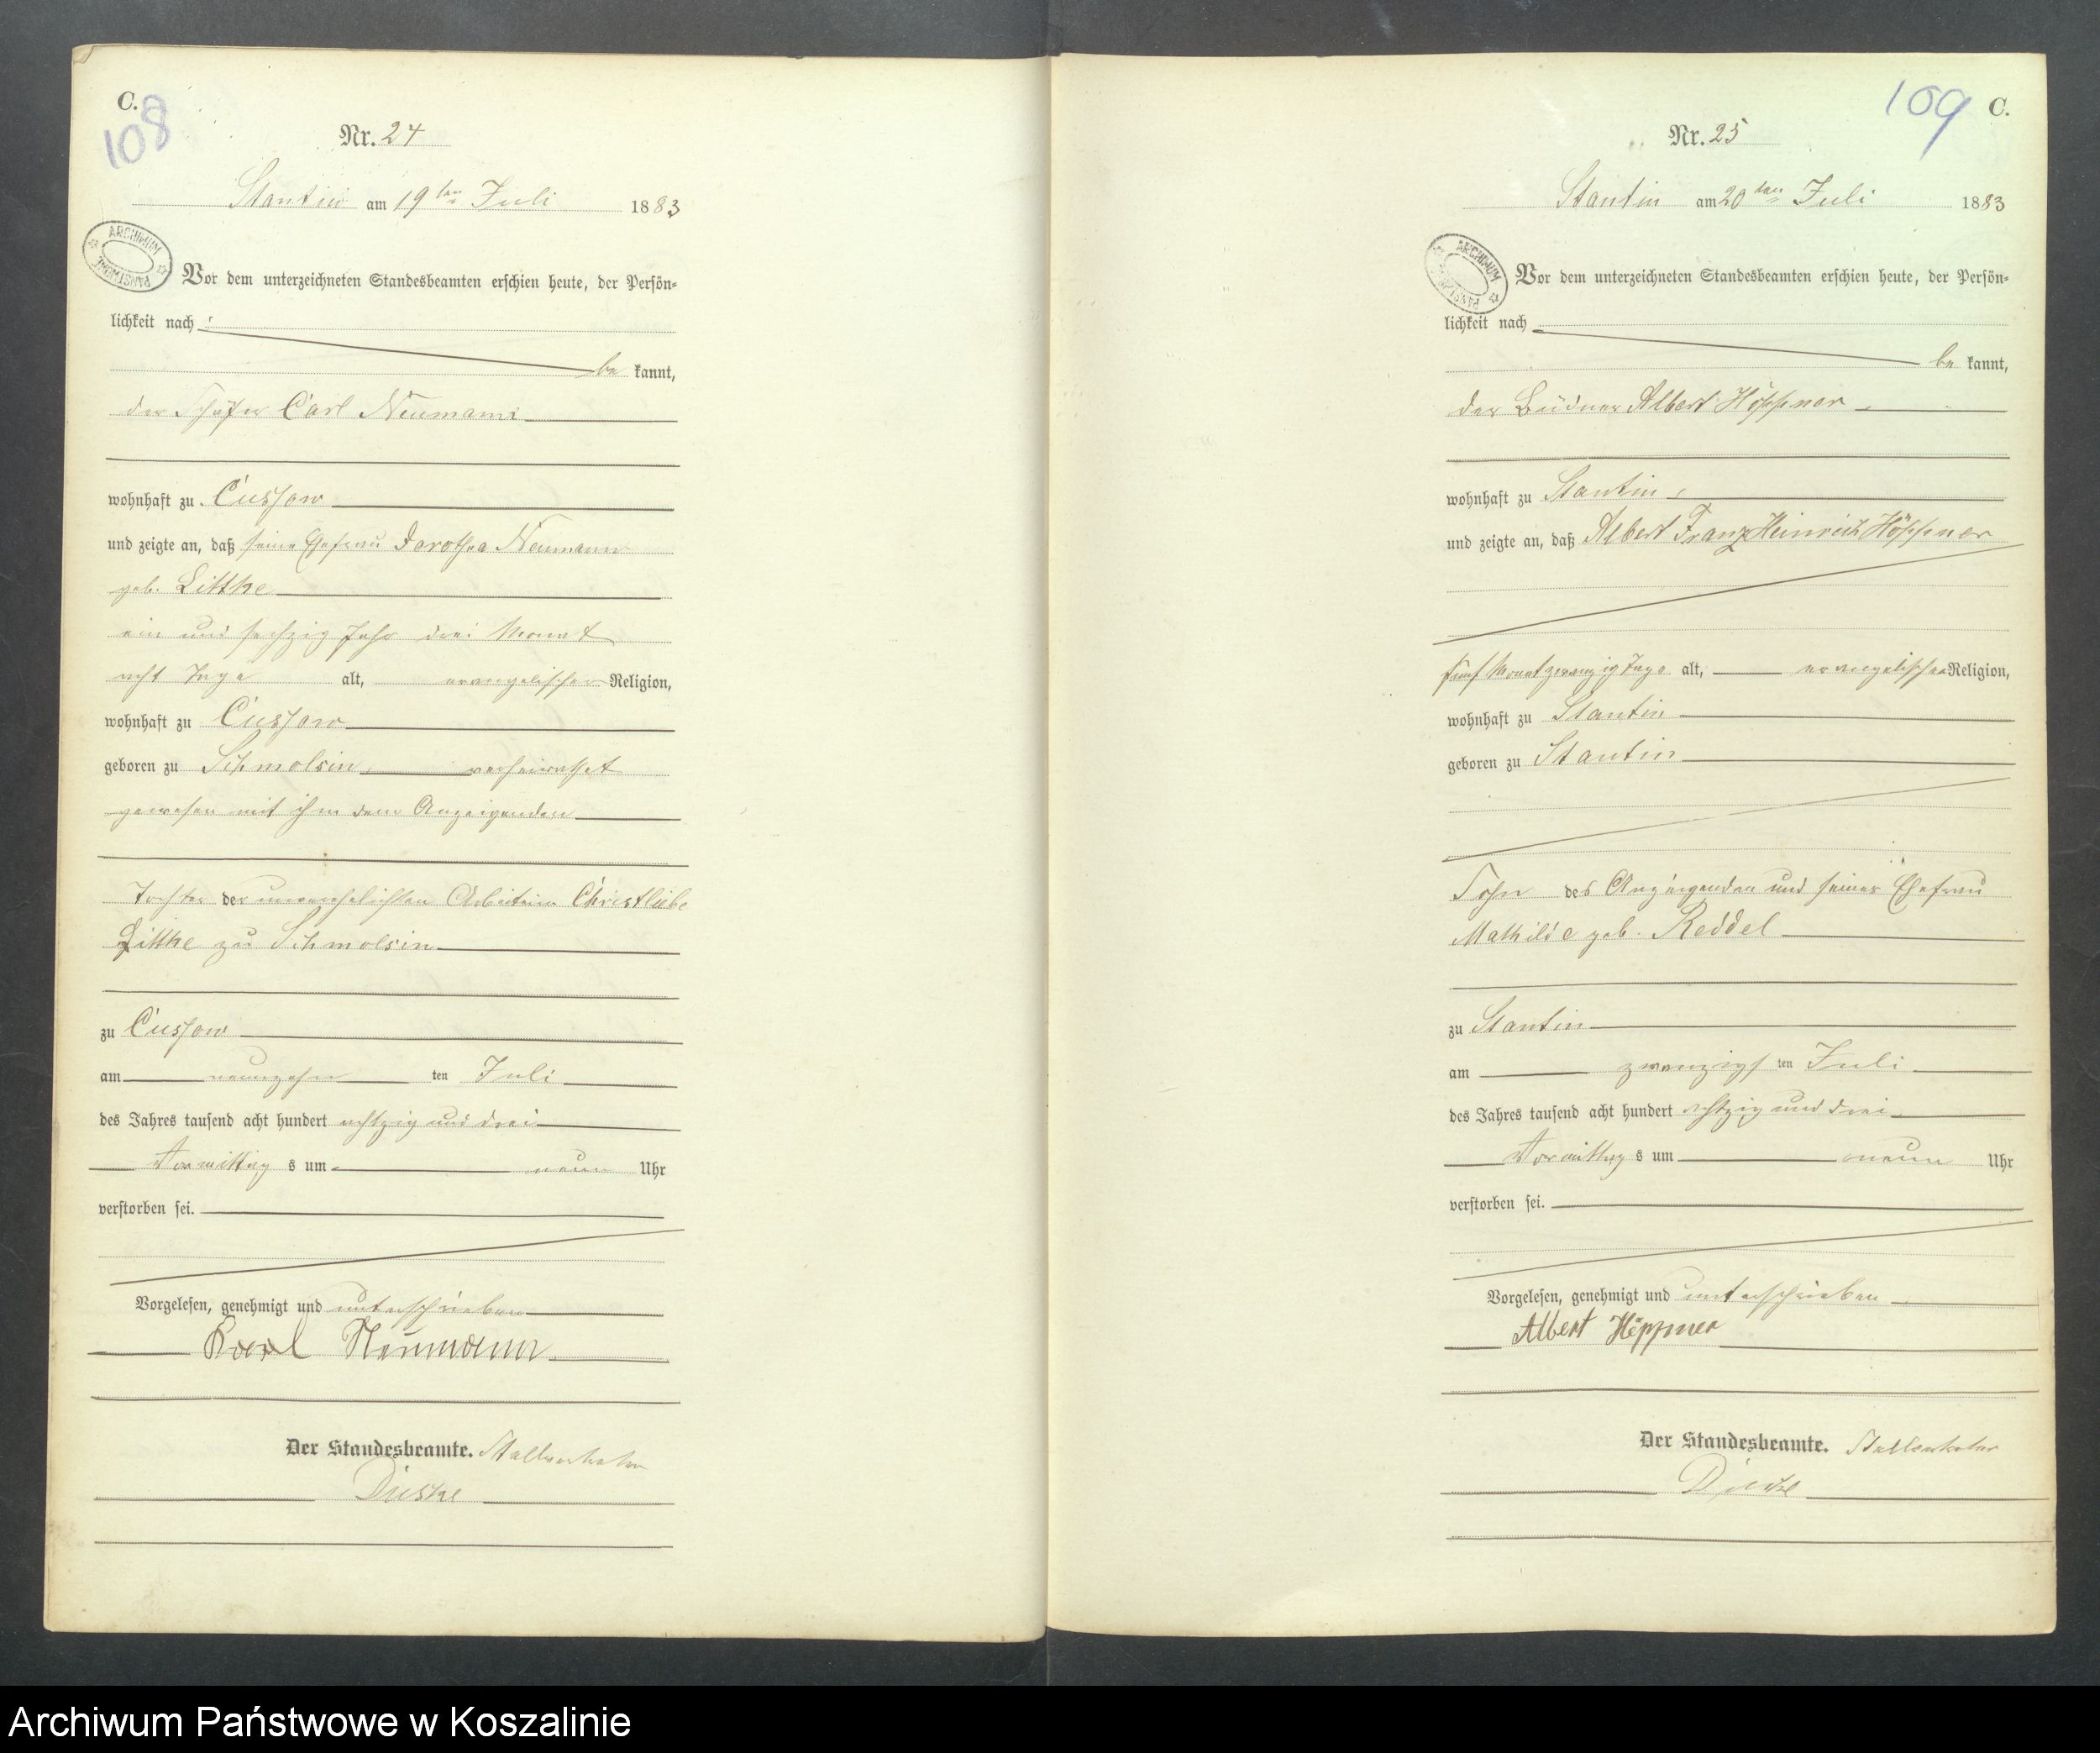 C.
108
Nr. 24
Stantin am 19ten Juli 1883
ARCHIWUM PAŃSTWOWE
Vor dem unterzeichneten Standesbeamten erschien heute, der Persön-
lichkeit nach
be kannt,
der Schäfer Carl Neumann
wohnhaft zu Cussow
und zeigte an, daß seine Ehefrau Dorothea Neumann
geb. Litthe
ein und sechzig Jahr drei Monat
acht Tage alt, evangelischer Religion,
wohnhaft zu Cussow
geboren zu Schmolsin, verheirathet
gewesen mit ihm dem Anzeigenden
Tochter der unverehelichten Arbeiterin Christliebe
Litthe zu Schmolsin
zu Cussow
am neunzehn ten Juli
des Jahres tausend acht hundert achtzig und drei
Vormittag s um neun Uhr
verstorben sei.
Vorgelesen, genehmigt und unterschrieben
Karl Neumann
Der Standesbeamte.
109 C.
Nr. 25
Stantin am 20ten Juli 1883
ARCHIWUM PAŃSTWOWE
Vor dem unterzeichneten Standesbeamten erschien heute, der Persön-
lichkeit nach
be kannt,
der Büdner Albert Höppner
wohnhaft zu Stantin,
und zeigte an, daß Albert Franz Heinrich Höppner
fünf Monat zwanzig Tage alt, evangelischer Religion,
wohnhaft zu Stantin
geboren zu Stantin
Sohn des Anzeigenden und seiner Ehefrau
Mathilde geb. Reddel
zu Stantin
am zwanzigs ten Juli
des Jahres tausend acht hundert achtzig und drei
Vormittag s um neun Uhr
verstorben sei.
Vorgelesen, genehmigt und unterschrieben
Albert Höppner
Der Standesbeamte.
Archiwum Państwowe w Koszalinie